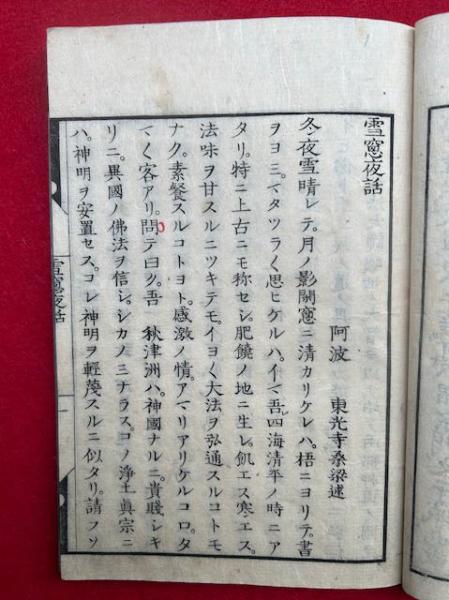 雪窓夜話
阿波　東光寺桑梁述
冬ノ夜雪晴レテ。月ノ影閑窓ニ清カリケレハ。梧ニヨリテ。書
ヲヨミ。マタツラ〱思ヒケルハ。イマ吾四海清平ノ時ニア
タリ。特ニ上古ニモ称セシ。肥饒ノ地ニ生レ。飢エス寒エス。
法味ヲ甘スルニツキテモ。イヨ〱大法ヲ弘通スルコトモ
ナク。素餐スルコトヨト。感激ノ情。アマリアリケルコロ。タ
マ〱客アリ。問テ曰ク。吾　秋津洲ハ。神國ナルニ。貴賤シキ
リニ。異國ノ佛法ヲ信シ。シカノミナラス。コノ浄土真宗ニ
ハ。神明ヲ安置セス。コレ神明ヲ輕蔑スルニ似タリ。請フソ
雪窓夜話
一